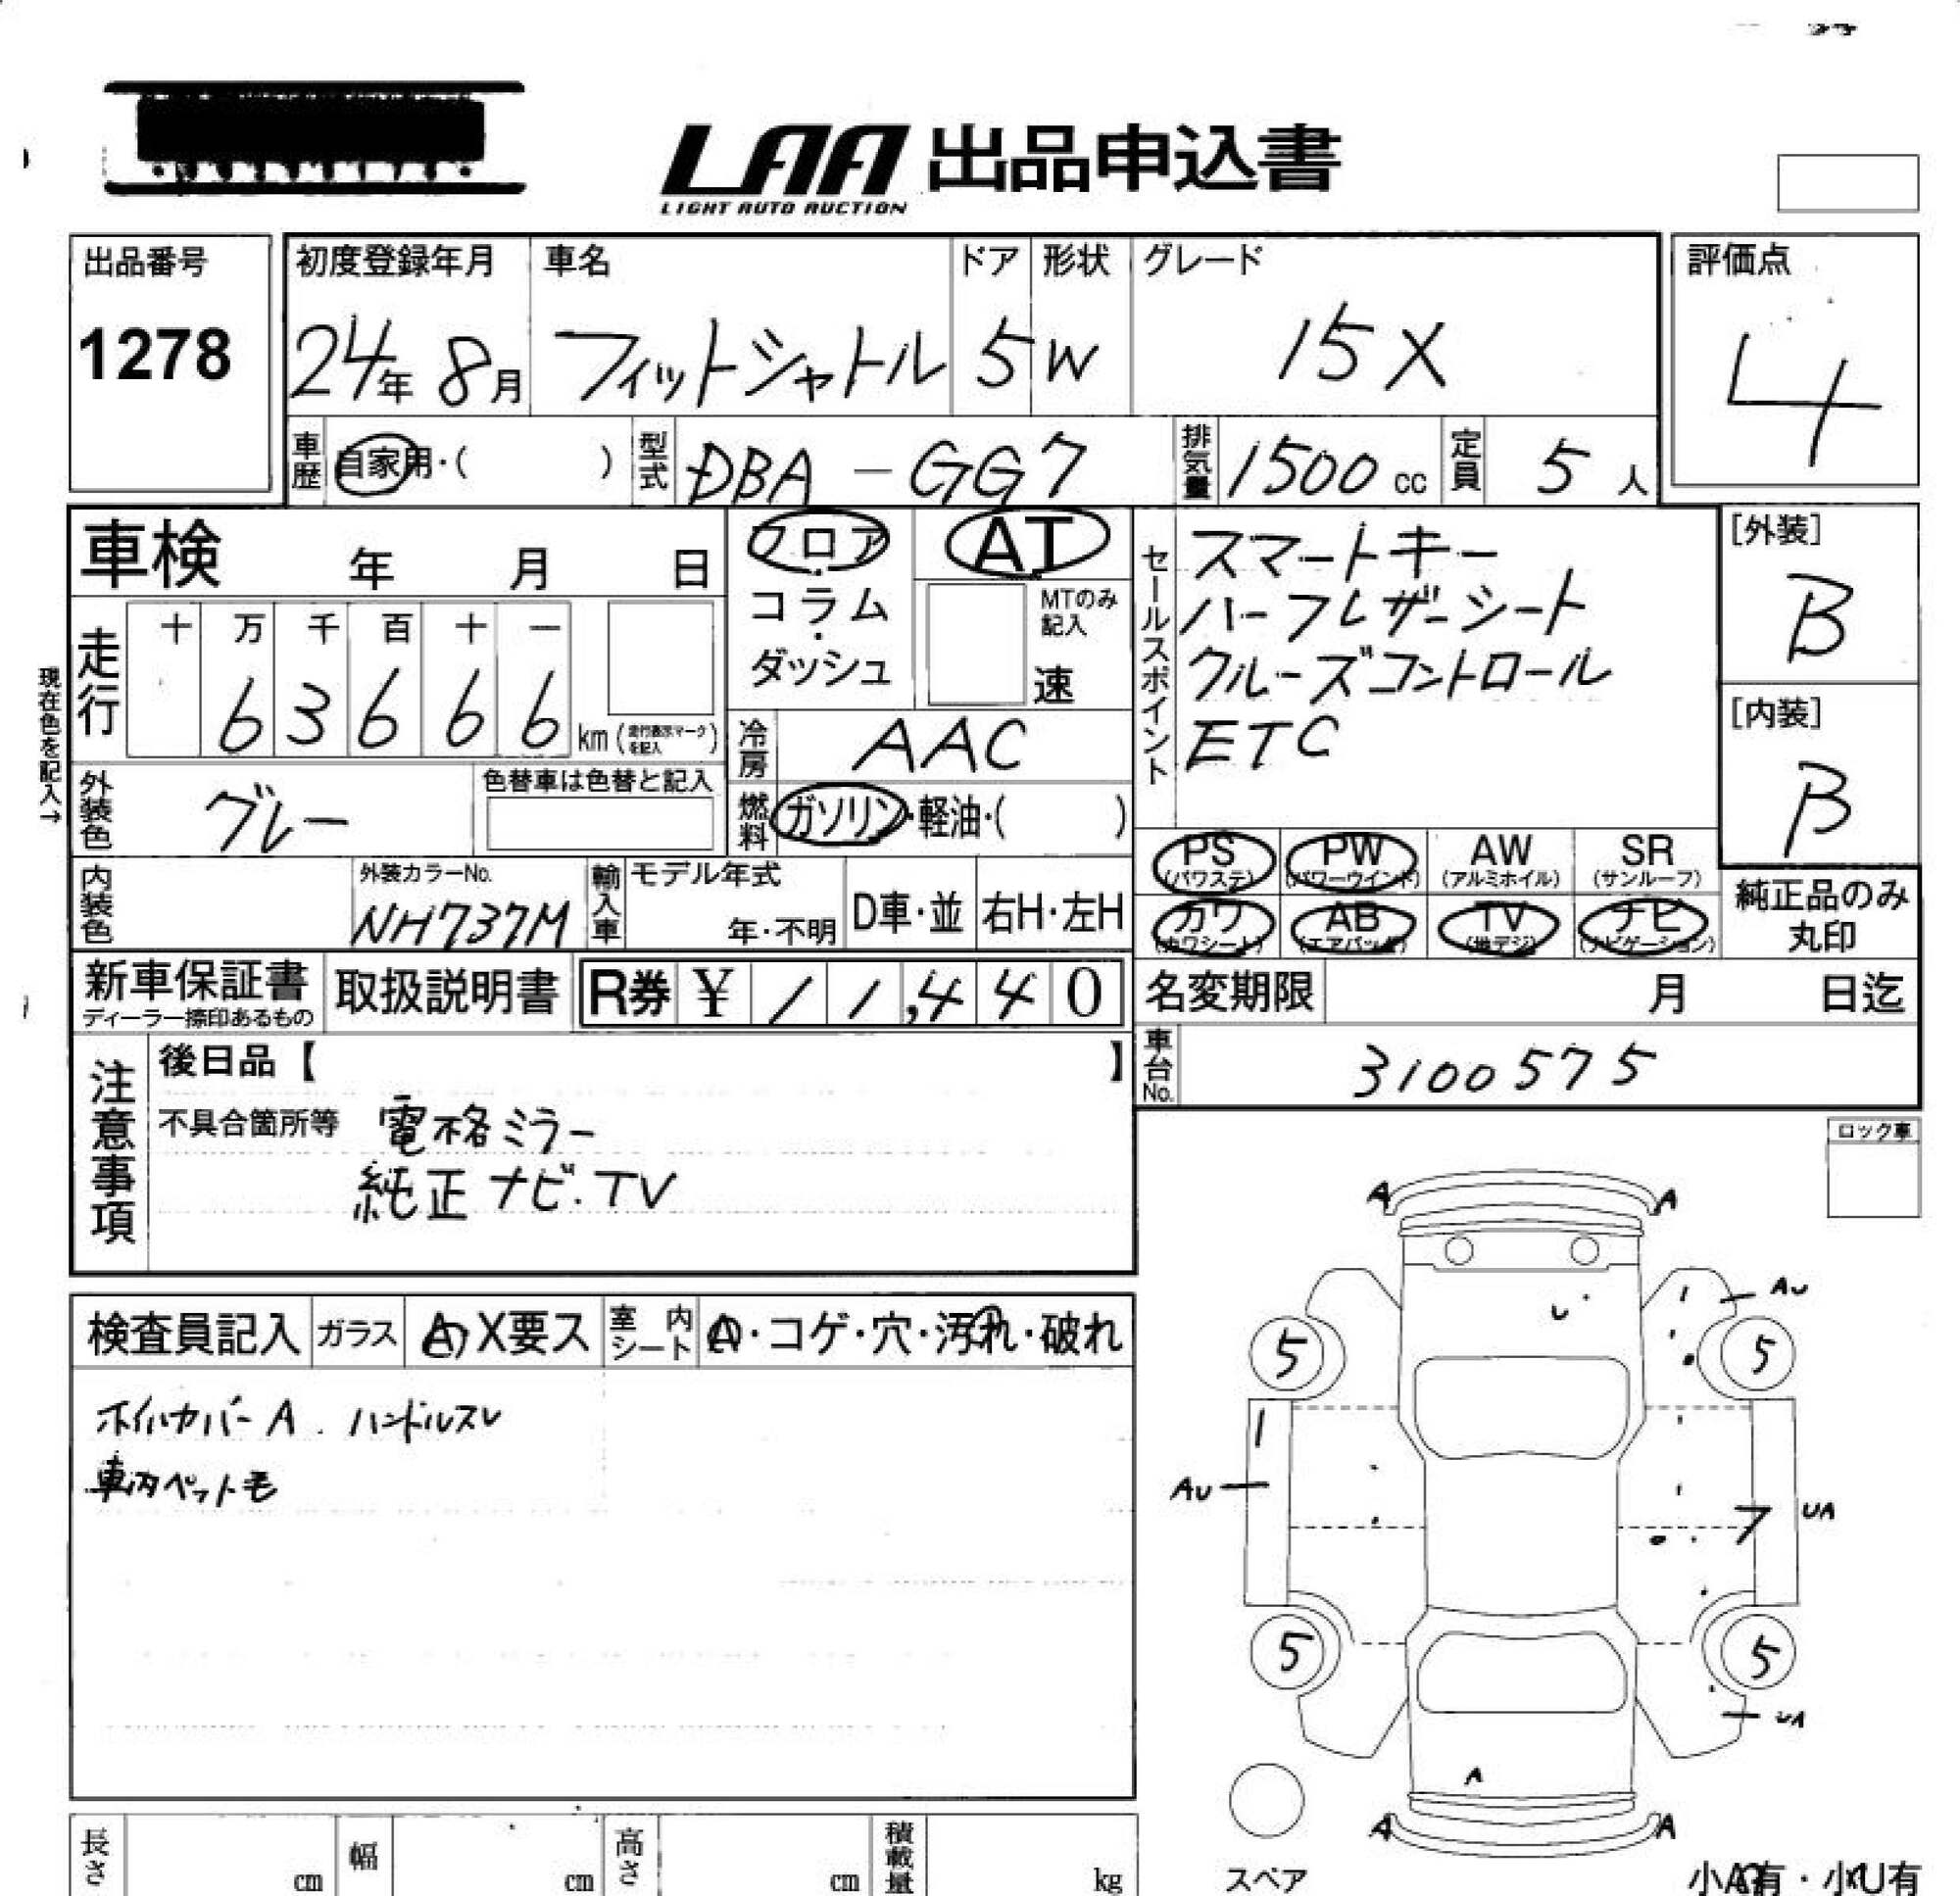 LAA 出品申込書
LIGHT AUTO AUCTION
出品番号
1278
初度登録年月
24年 8月
車名
フィットシャトル
ドア
5
形状
W
グレード
15X
評価点
4
車歴 自家用・( )
型式 DBA-GG7
排気量 1500 cc
定員 5 人
車検 年 月 日
フロア・コラム・ダッシュ
AT
MTのみ記入
速
セールスポイント
スマートキー
ハーフレザーシート
クルーズコントロール
ETC
[外装]
B
[内装]
B
現在色を記入→
走行
十 万 千 百 十 一
6 3 6 6 6 km (走行表示マークを記入)
冷房 AAC
外装色 グレー
色替車は色替と記入
燃料 ガソリン・軽油・( )
PS (パワステ) PW (パワーウインド) AW (アルミホイル) SR (サンルーフ)
カワ (カワシート) AB (エアバッグ) TV (地デジ) ナビ (ナビゲーション)
純正品のみ丸印
内装色
外装カラーNo.
NH737M
輸入車 モデル年式 年・不明 D車・並 右H・左H
新車保証書
ディーラー捺印あるもの
取扱説明書
R券 ¥ 11,440
名変期限 月 日迄
車台No. 3100575
注意事項
後日品【 】
不具合箇所等 電格ミラー
純正ナビ.TV
ロック車
検査員記入 ガラス A X要ス 室内シート A・コゲ・穴・汚れ・破れ
ホイルカバーA. ハンドルスレ
車内ペット毛
A A
U
AU
5 5
1
AU
7 UA
5 5
UA
A
A A
スペア
小A有・小U有
長さ cm 幅 cm 高さ cm 積載量 kg